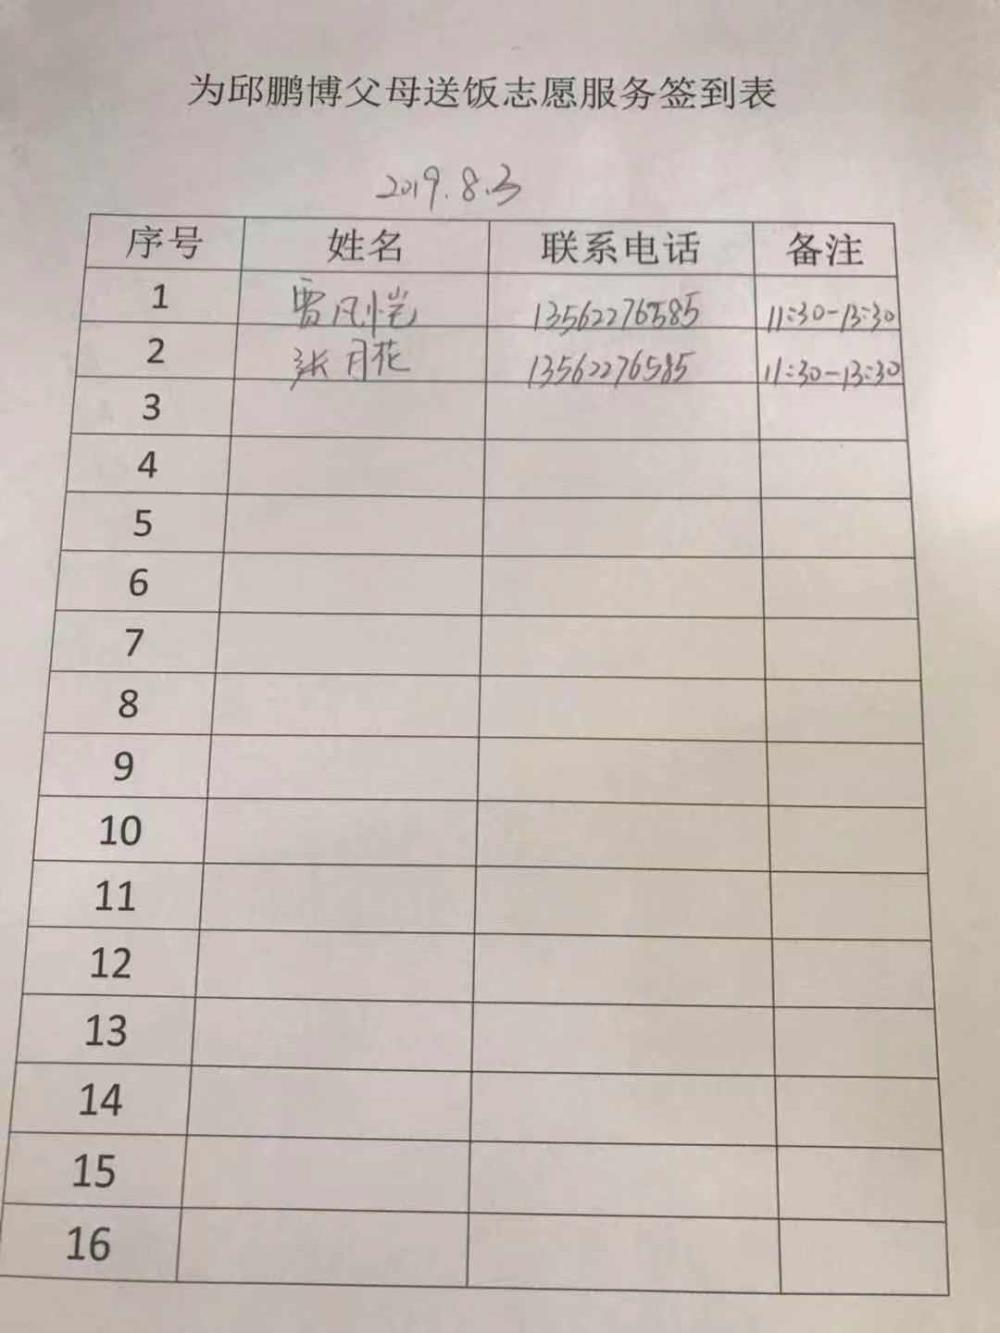 为邱鹏博父母送饭志愿服务签到表
2019.8.3
序号 姓名 联系电话 备注
1 贾凡恺 13562276585 11:30-13:30
2 张月花 13562276585 11:30-13:30
3
4
5
6
7
8
9
10
11
12
13
14
15
16